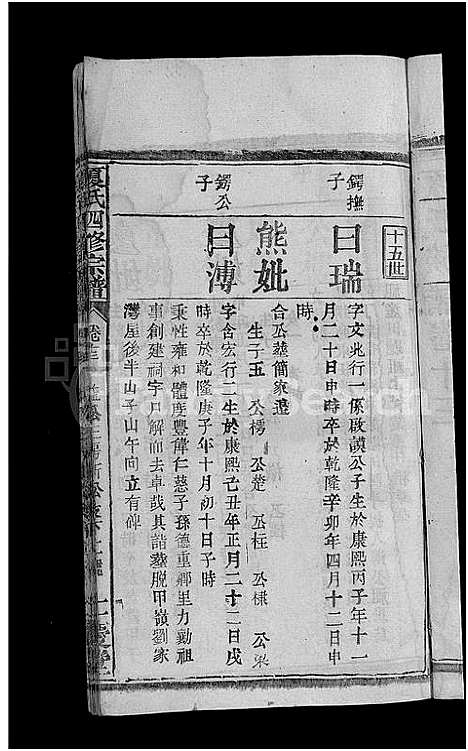 十五世
鍔撫子
日瑞
字文兆行一係啟謨公子生於康熙丙子年十一
月二十日申時卒於乾隆辛卯年四月十二日申
時
熊妣
合公葬簡家邉
生子五 公樗 公楚 公柱 公樑 公梁
鍔公子
日溥
字含宏行二生於康熙己丑年正月二十二日戌
時卒於乾隆庚子年十月初十日子時
秉性雍和體度豐偉仁慈子孫德重鄉里力勷祖
事創建祠宇尸解而去卓哉其詣葬脫甲嶺劉家
灣屋後半山子山午向立有碑
夏氏四修宗譜
卷三